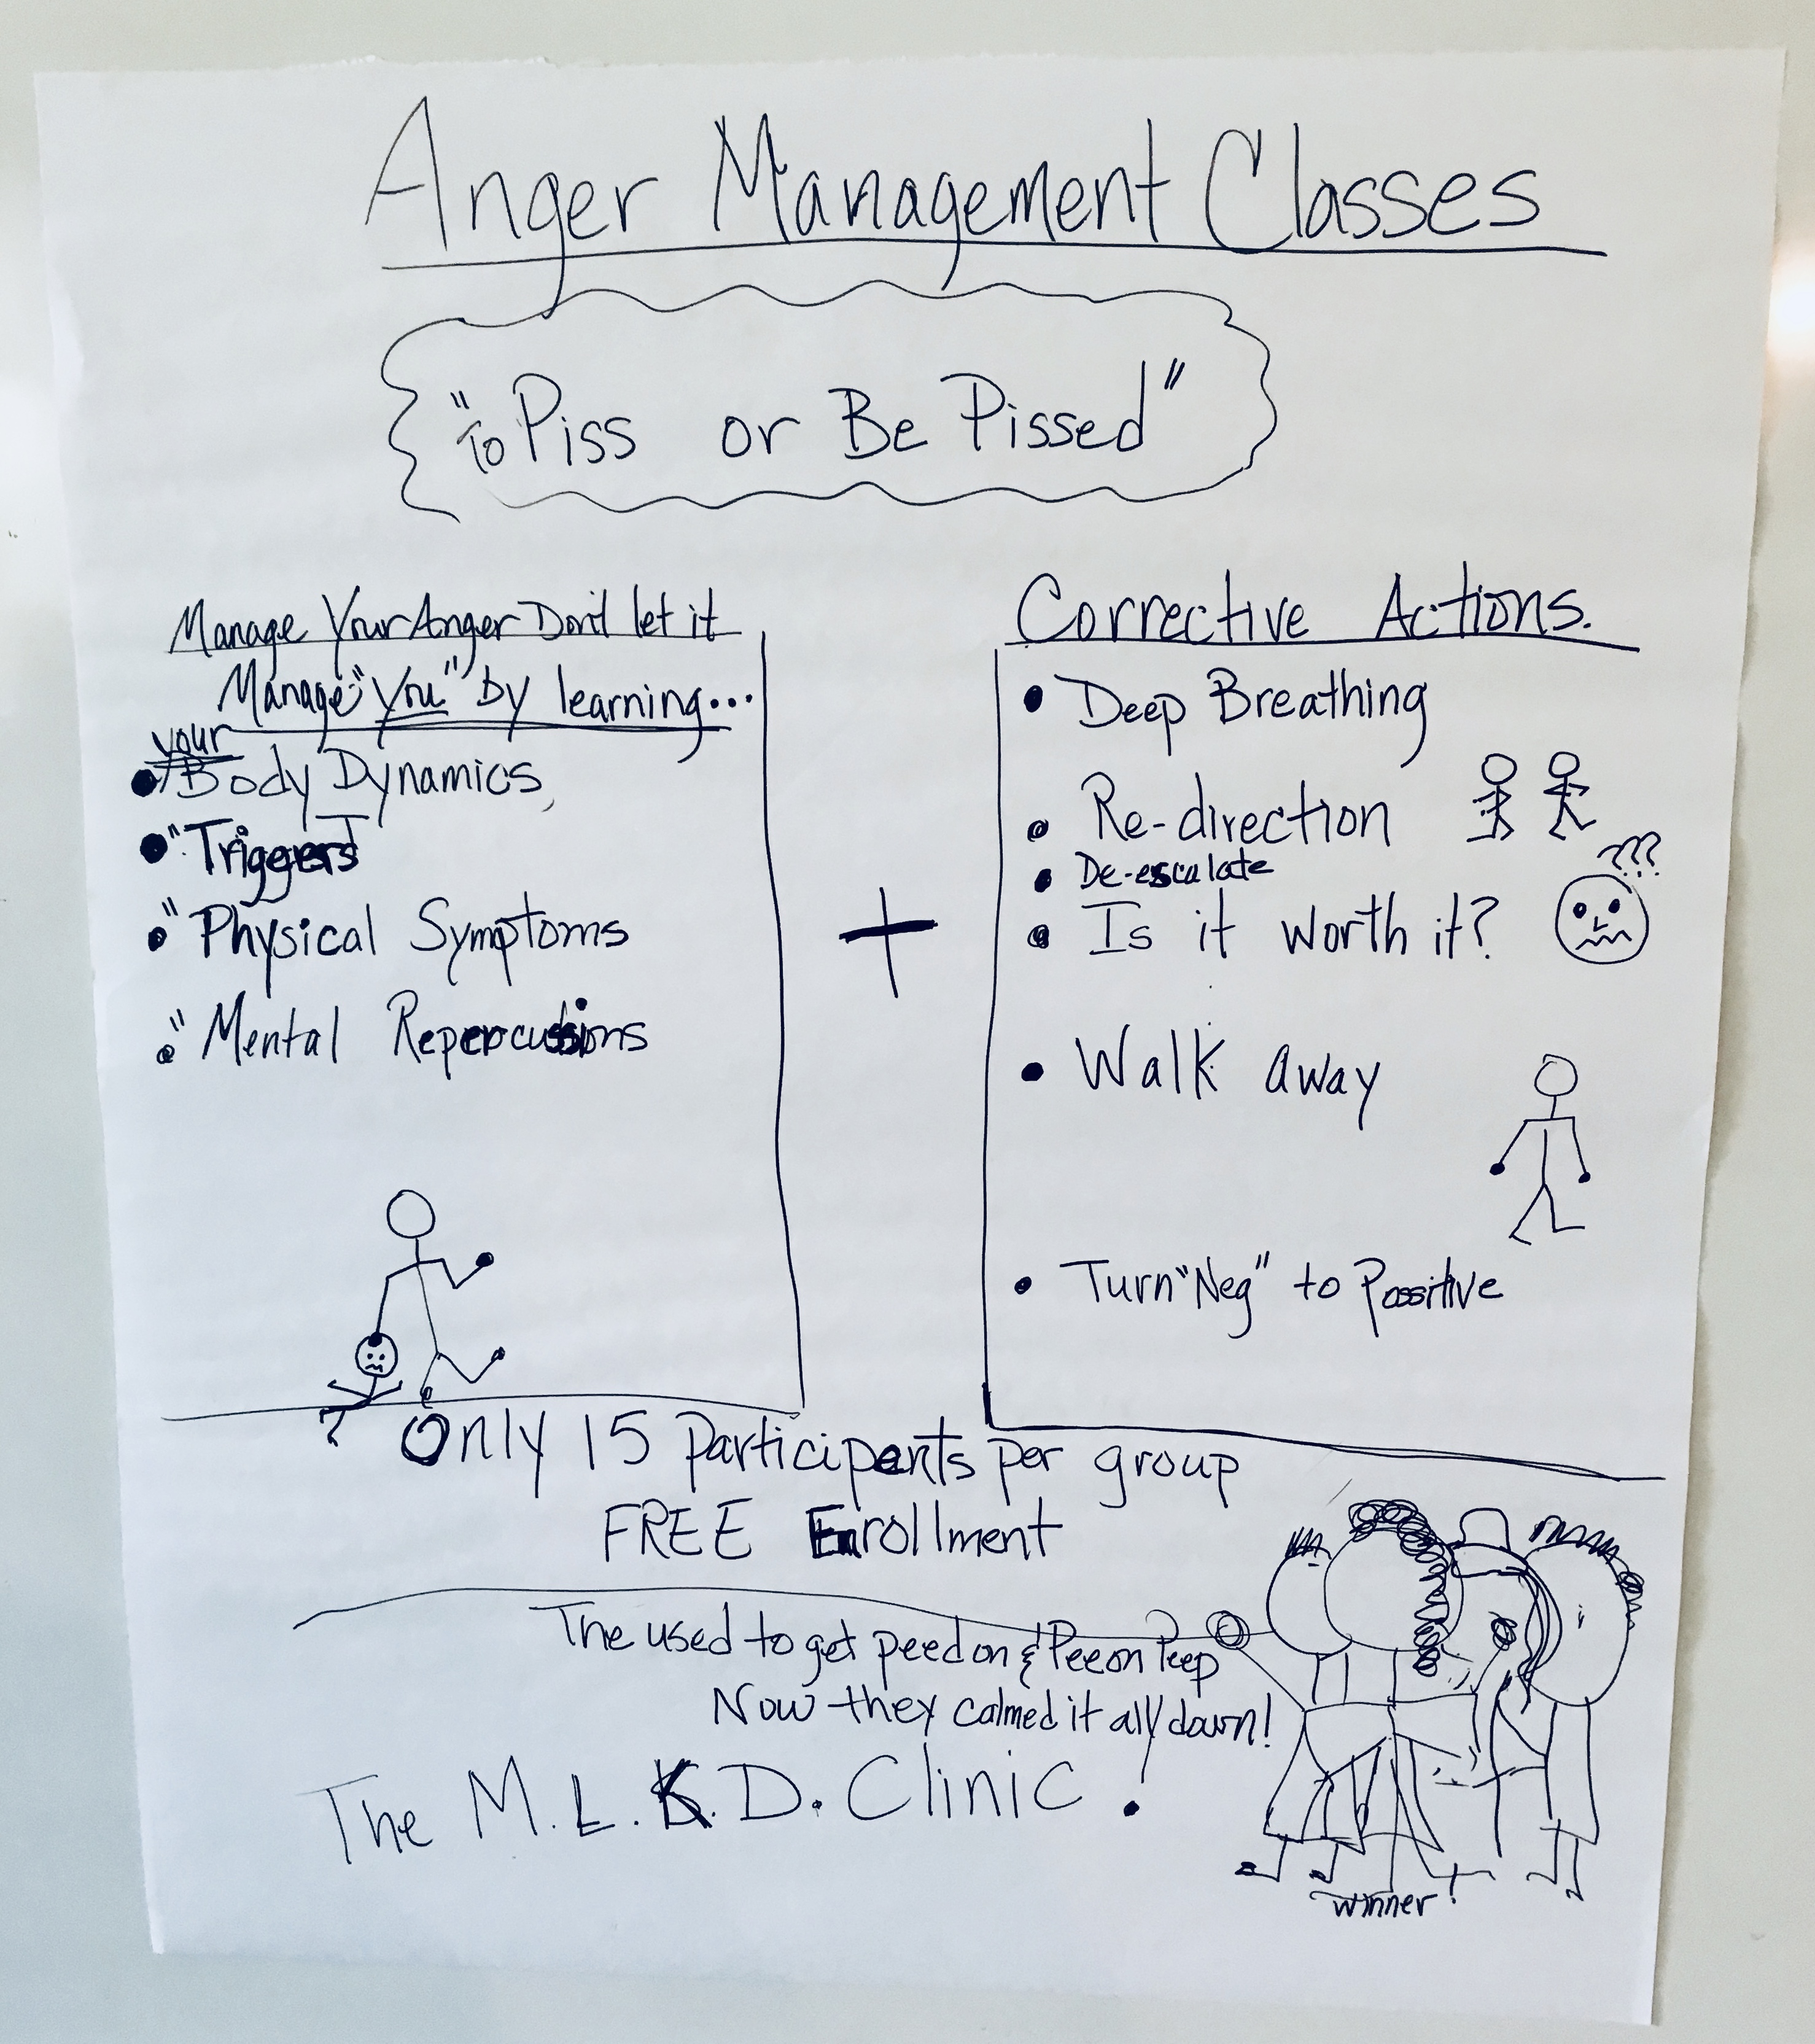 Anger Management Classes
"To Piss or Be Pissed"
Manage Your Anger Don't let it
Manage "You" by learning...
your
• Body Dynamics,
• " Triggers
• " Physical Symptoms
• " Mental Repercussions
+
Corrective Actions.
• Deep Breathing
• Re-direction
• De-escalate
???
• Is it worth it?
• Walk away
• Turn "Neg" to Possitive
Only 15 participents per group
FREE Enrollment
The used to get peed on & Pee on Peep
Now they calmed it all down!
The M.L.K.D. Clinic.
winner!